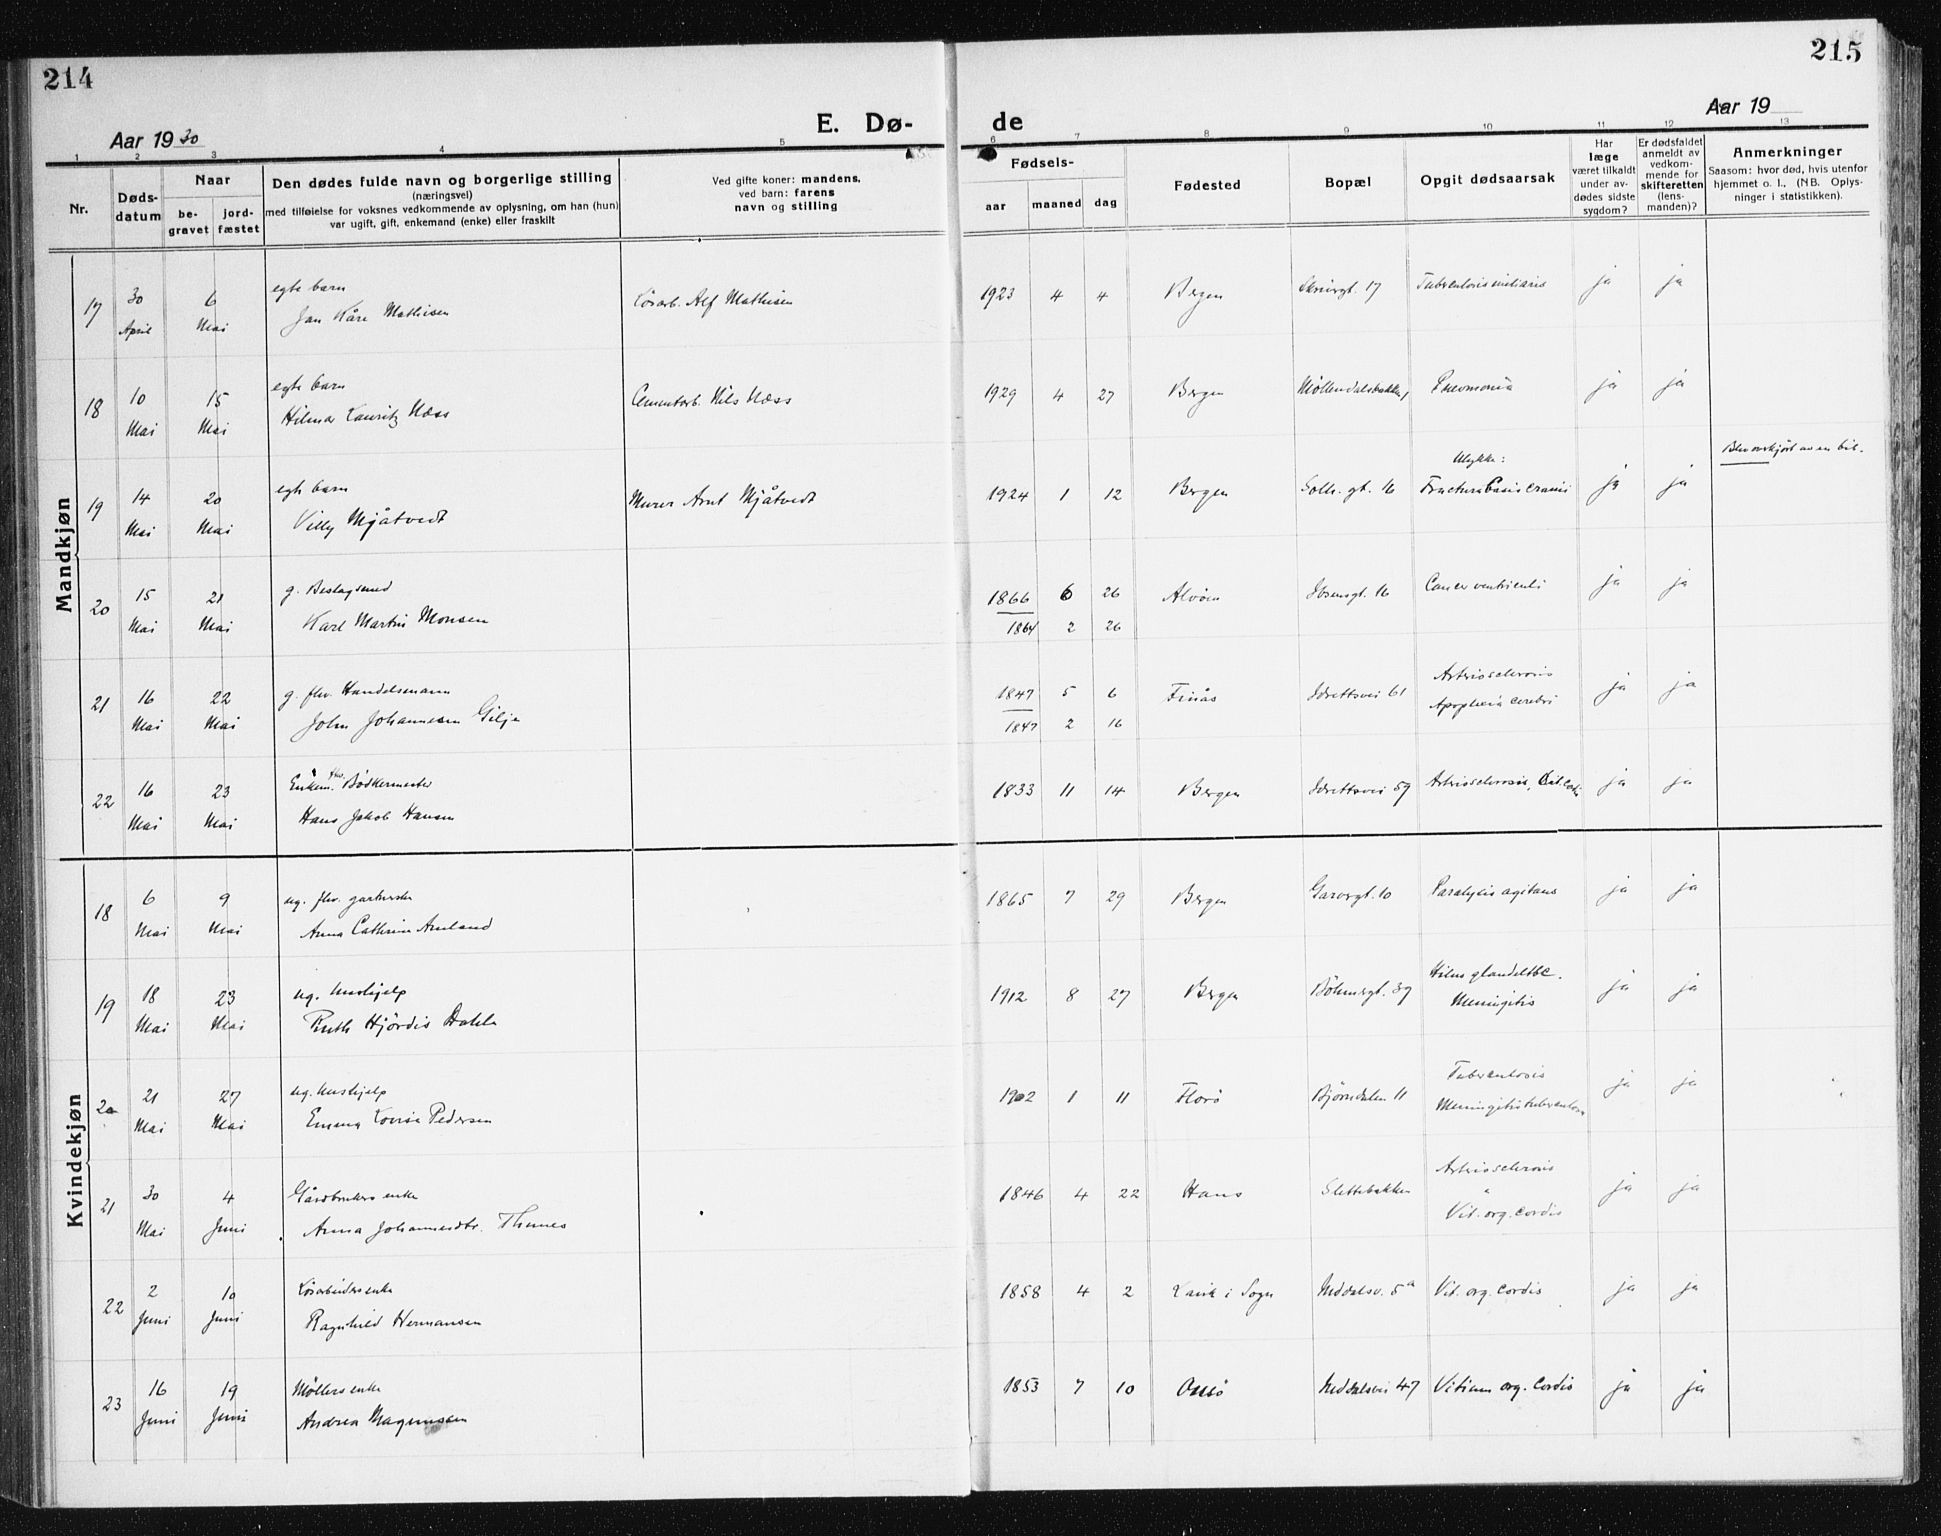 214
215
Aar 1930
E. Dø-
de
Aar 19
1 2 3 4 5 6 7 8 9 10 11 12 13
Nr.
Døds-
datum
Naar
be-
gravet
jord-
fæstet
Den dødes fulde navn og borgerlige stilling
(næringsvei)
med tilføielse for voksnes vedkommende av oplysning, om han (hun)
var ugift, gift, enkemand (enke) eller fraskilt
Ved gifte koner: mandens,
ved barn: farens
navn og stilling
Fødsels-
aar maaned dag
Fødested
Bopæl
Opgit dødsaarsak
Har
læge
været tilkaldt
under av-
dødes sidste
sygdom?
Er dødsfaldet
anmeldt av
vedkom-
mende for
skifteretten
(lens-
manden)?
Anmerkninger
Saasom: hvor død, hvis utenfor
hjemmet o. l., (NB. Oplys-
ninger i statistikken).
Mandkjøn
17 30 April 6 Mai egte barn Løsarb. Alf Mathisen 1923 4 4 Bergen 17 Tuberculosis miliaris ja ja
Jan Kåre Mathisen
18 10 Mai 15 Mai egte barn Cementarb. Nils Næss 1929 4 27 Bergen Møllendalsbakken 1 Pneumonia ja ja
Hilmar Lauritz Næss
Blev overkjørt av en bil.
Ulykke:
19 14 Mai 20 Mai egte barn Murer Arnt Mjåtvedt 1924 1 12 Bergen gt. 16 Fractura basis cranii ja ja
Villy Mjåtvedt
20 15 Mai 21 Mai g. Beslagsmed 1866 6 26 Alvøen Ibsensgt. 16 Cancer ventriculi ja ja
Karl Martin Monsen 1864 2 26
21 16 Mai 22 Mai g. fhv. Handelsmann 1847 5 6 Finås Idrettsvei 61 Arteriosclerosis ja ja
John Johannesen Gilje 1847 2 16 Apoplexia cerebri
22 16 Mai 23 Mai Enkem. fhv. Bødkermester 1833 11 14 Bergen Idrettsvei 59 Arteriosclerosis, ja ja
Hans Jakob Hansen
Kvindekjøn
18 6 Mai 9 Mai ug. fhv. 1865 7 29 Bergen gt. 10 Paralysis agitans ja ja
Anna Cathrine Amland
19 18 Mai 23 Mai ug. hushjelp 1912 8 27 Bergen Bøhmergt. 39 Hilus glandeltbc. ja ja
Ruth Hjørdis Dahle Meningitis
20 21 Mai 27 Mai ug. hushjelp 1902 1 11 Florø Bjørndalen 11 Tuberculosis ja ja
Emma Lovise Pedersen Meningitis tuberculosa
21 30 Mai 4 Juni Gårdbrukers enke 1846 4 22 Haus Slettebakken Arteriosclerosis ja ja
Anna Johannesdtr. Thunes Vit. org. cordis
22 2 Juni 10 Juni Løsarbeiders enke 1858 4 2 Lavik i Sogn Neddalsv. 5a Vit. org. cordis ja ja
Ragnhild Hermansen
23 16 Juni 19 Juni Møllers enke 1853 7 10 Neddalsvei 47 Vitium org. cordis ja ja
Andrea Magnussen